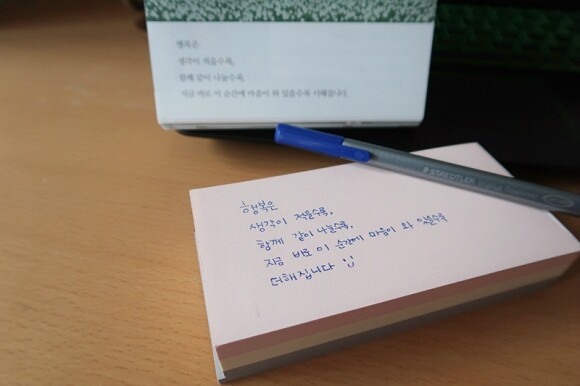 행복은
생각이 적을수록,
함께 같이 나눌수록,
지금 바로 이 순간에 마음이 와 있을수록 더해집니다.
STAEDTLER
행복은
생각이 적을수록,
함께 같이 나눌수록,
지금 바로 이 순간에 마음이 와 있을수록
더해집니다